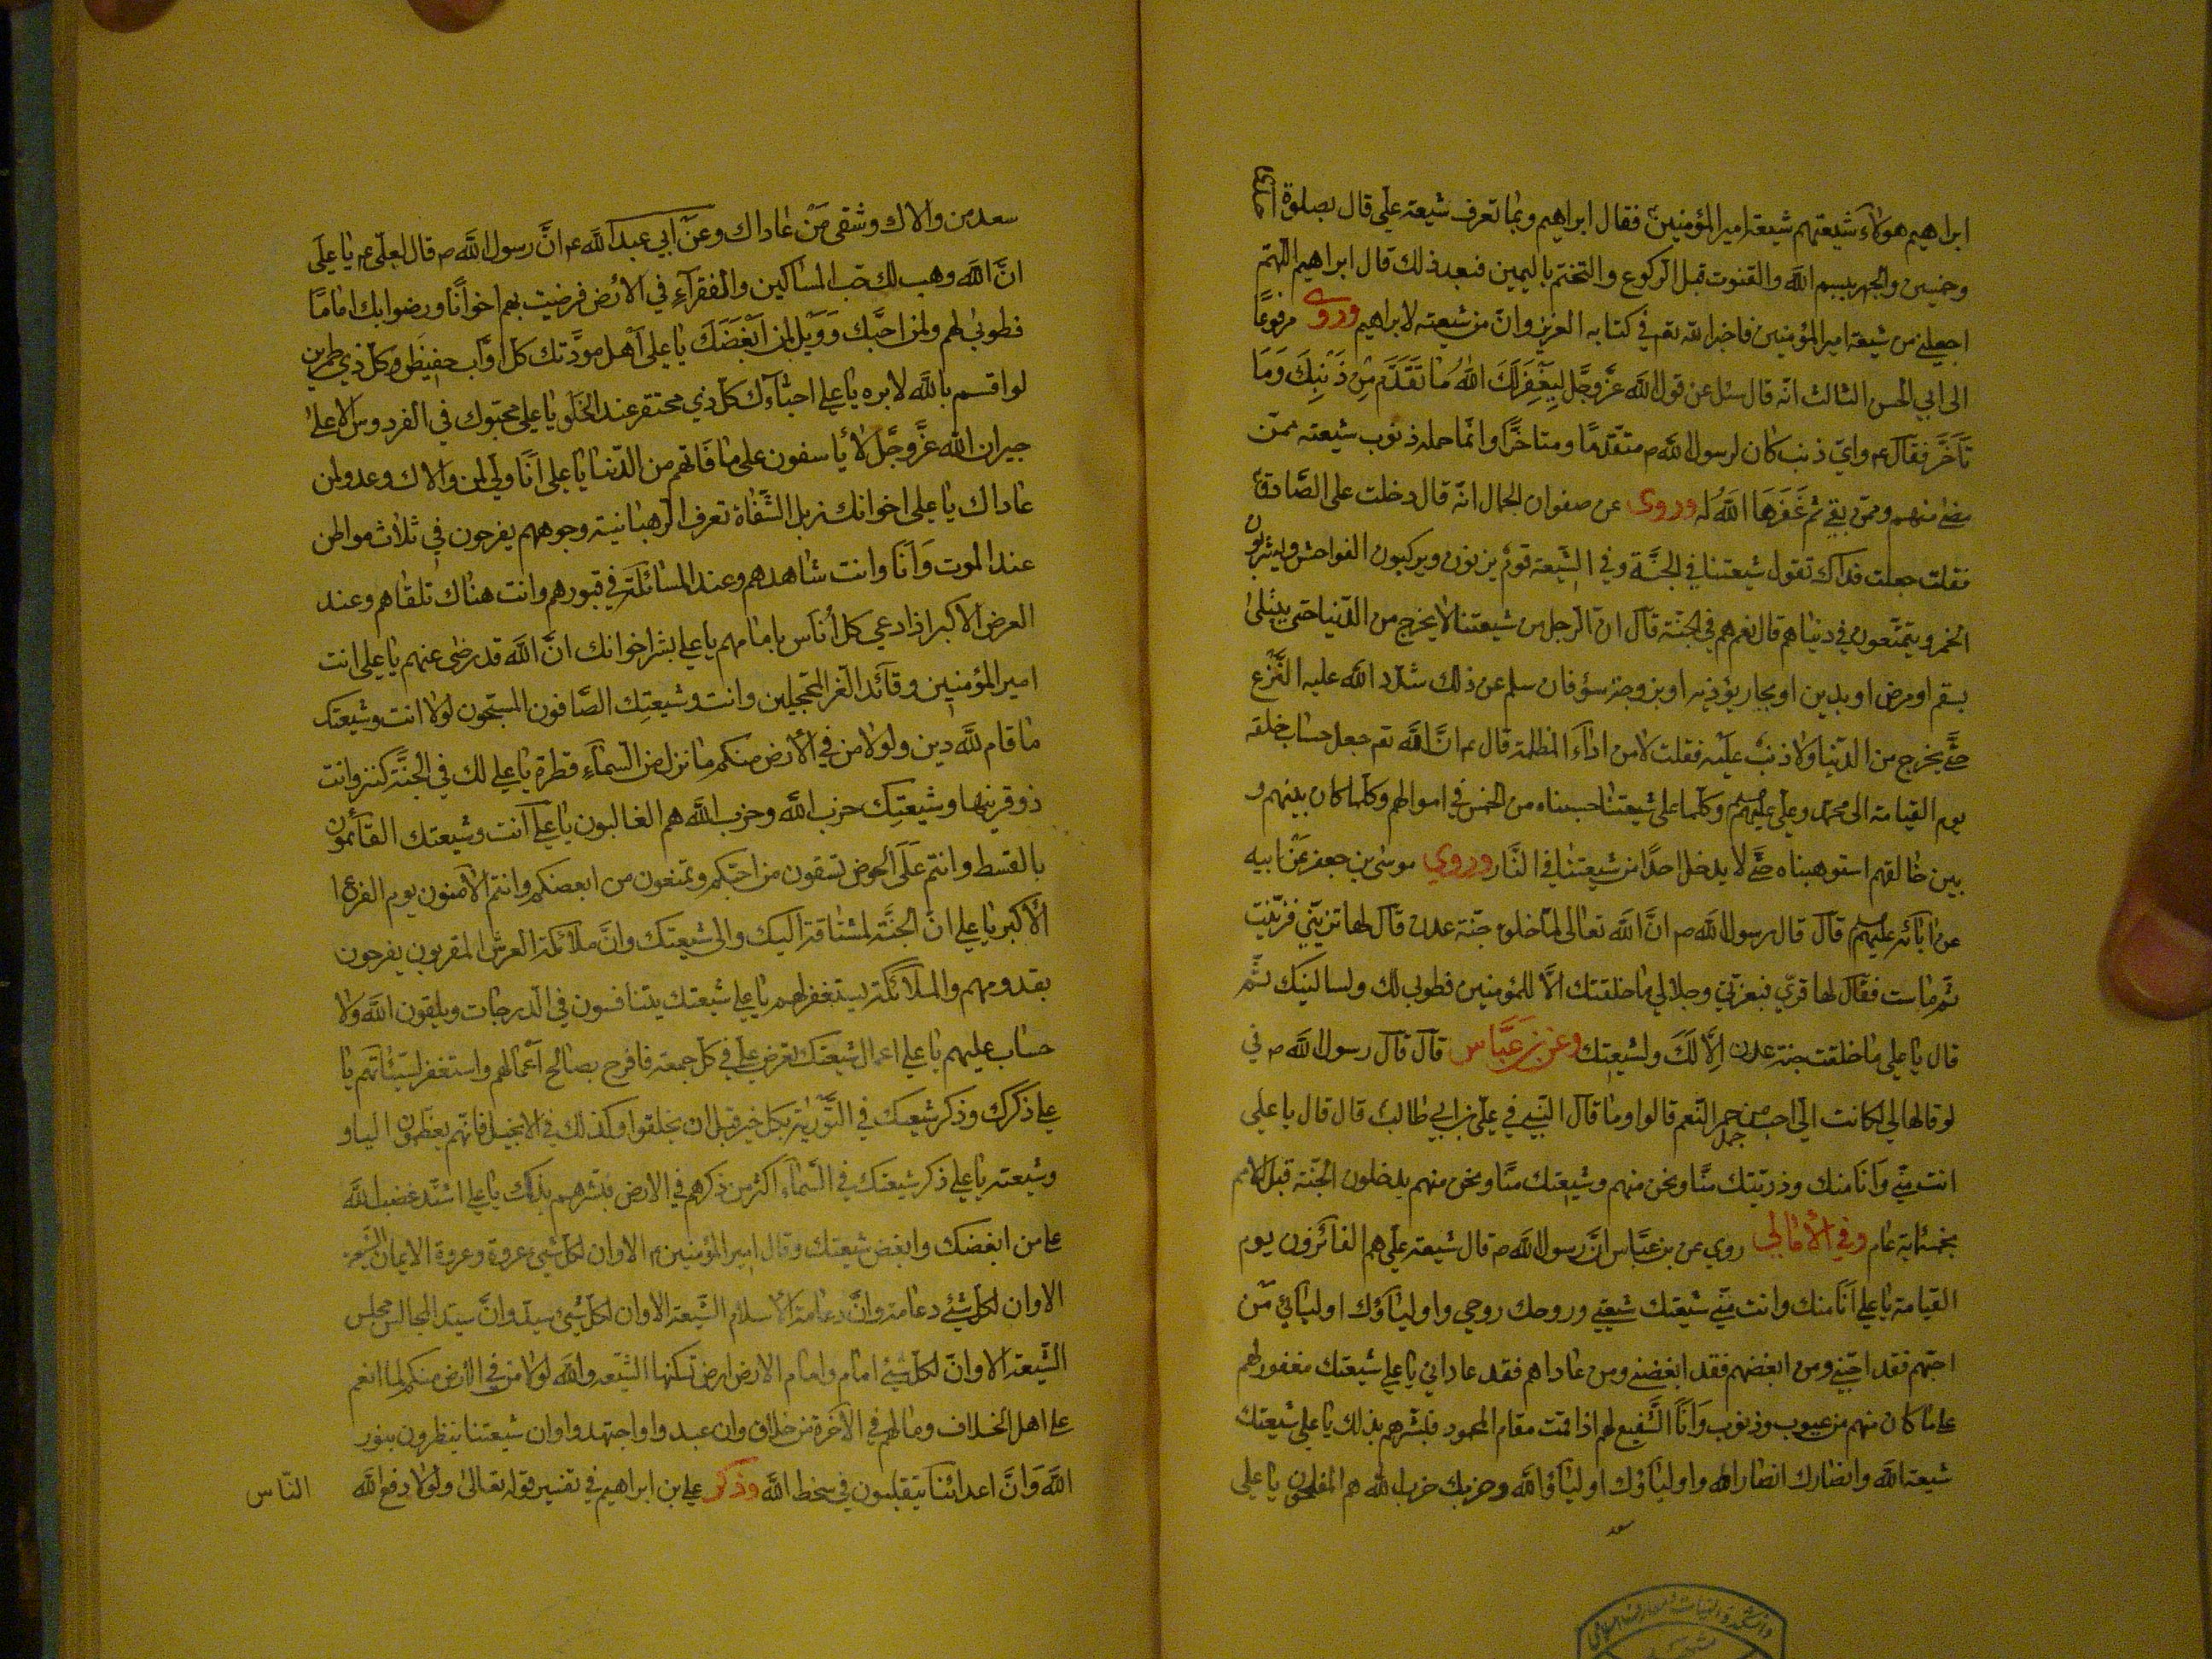 ابراهيم هولاء شيعتهم شيعة امير المؤمنين فقال ابراهيم وبما تعرف شيعة علي قال بصلوة احدى
وخمسين والجهر ببسم الله والقنوت قبل الركوع والتختم باليمين فبعد ذلك قال ابراهيم اللهم
اجعلني من شيعة امير المؤمنين فاخبر الله تعم في كتابه العزيز وان من شيعته لابراهيم وروى مرفوعًا
الى ابي الحسن الثالث انه قال سئل عن قول الله عز وجل لِيَغْفِرَ لَكَ اللهُ ما تَقَدَّمَ مِن ذَنبِكَ وَمَا
تَأَخَّرَ فقال ع واي ذنب كان لرسول الله ص متقدمًا ومتاخرًا وانما حمله ذنوب شيعته ممن
مضى منهم وممن بقي ثم غَفَرَهَا اللهُ له وروى عن صفوان الجمال انه قال دخلت على الصادق ع
فقلت جعلت فداك تقول شيعتنا في الجنة وفي الشيعة قوم يزنون ويركبون الفواحش ويشربون
الخمر ويتمتعون في دنياهم قال نعم هم في الجنة قال ان الرجل من شيعتنا لا يخرج من الدنيا حتى يبتلى
بسقم او مرض او بدين او بجار يؤذيه او بزوجة سؤ فان سلم عن ذلك شدد الله عليه النزع
حتى يخرج من الدنيا ولا ذنب عليه فقلت لا من اداء المظلمة قال ع ان الله تعم جعل حساب خلقه
يوم القيامة الى محمد وعلي عليهم وكلما على شيعتنا حسبناه من الخمس في اموالهم وكلما كان بينهم و
بين خالقهم استوهبناه حتى لا يدخل احدًا من شيعتنا في النار وروي موسى بن جعفر عن ابيه
عن ابائه عليهم قال قال رسول الله ص ان الله تعالى لما خلق جنة عدن قال لها تزيني فزينت
ثم ماست فقال لها قري فبعزتي وجلالي ما خلقتك الا للمؤمنين فطوبى لك ولساكنيك ثم
قال يا علي ما خلقت جنة عدن الا لك ولشيعتك وعن بن عباس قال قال رسول الله ص في
لو قالها لي لكانت الي احب من حمر النعم قالوا وما قال النبي في علي بن ابي طالب قال قال يا علي
انت مني وانا منك وذريتك منا ونحن منهم وشيعتك منا ونحن منهم يدخلون الجنة قبل الامم
بخمسمائة عام وفي الأمالي روي عن بن عباس ان رسول الله ص قال شيعة علي هم الفائزون يوم
القيامة يا علي انا منك وانت مني شيعتك شيعتي وروحك روحي واولياؤك اوليائي من
احبهم فقد احبني ومن ابغضهم فقد ابغضني ومن عاداهم فقد عاداني يا علي شيعتك مغفور لهم
على ما كان منهم من عيوب وذنوب وانا الشفيع لهم اذا قمت مقام المحمود فبشرهم بذلك يا علي شيعتك
شيعة الله وانصارك انصار الله واولياؤك اولياؤ الله وحزبك حزب الله هم المفلحون يا علي
سعد
سعد من والاك وشقي من عاداك وعن ابي عبد الله ع ان رسول الله ص قال لعلي ع يا علي
ان الله وهب لك حب المساكين والفقراء في الارض فرضيت بهم اخوانًا ورضوا بك امامًا
فطوبى لهم ولمن احبك وويل لمن ابغضك يا علي اهل مودتك كل اواب حفيظ وكل ذي طمرين
لو اقسم بالله لابره يا علي احباؤك كل ذي محتقر عند الخلق يا علي محبوك في الفردوس الاعلى
جيران الله عز وجل لا يأسفون على ما فاتهم من الدنيا يا علي انا ولي لمن والاك وعدو لمن
عاداك يا علي اخوانك ذبل الشفاة تعرف الرهبانية وجوههم يفرحون في ثلاث مواطن
عند الموت وانا وانت شاهدهم وعند المسائلة في قبورهم وانت هناك تلقاهم وعند
العرض الاكبر اذا دعي كل اناس بامامهم يا علي بشر اخوانك ان الله قد رضى عنهم يا علي انت
امير المؤمنين وقائد الغر المحجلين وانت وشيعتك الصافون المسبحون لولا انت وشيعتك
ما قام لله دين ولولا من في الارض منكم ما نزل من السماء قطرة يا علي لك في الجنة كنز وانت
ذو قرنيها وشيعتك حزب الله وحزب الله هم الغالبون يا علي انت وشيعتك القائمون
بالقسط وانتم على الحوض تسقون من احبكم وتمنعون من ابغضكم وانتم الامنون يوم الفزع ا
الأكبر يا علي ان الجنة لمشتاقة اليك والى شيعتك وان ملائكة العرش المقربون يفرحون
بقدومهم والملائكة ليستغفر لهم يا علي شيعتك يتنافسون في الدرجات ويلقون الله ولا
حساب عليهم يا علي اعمال شيعتك تعرض علي في كل جمعة فافرح بصالح اعمالهم واستغفر لسيئاتهم يا
علي ذكرك وذكر شيعتك في التورية بكل خير قبل ان يخلقوا وكذلك في الانجيل فانهم يعظمون اليا و
وشيعته يا علي ذكر شيعتك في السماء اكثر من ذكرهم في الارض فبشرهم بذلك يا علي اشتد غضب الله
على من ابغضك وابغض شيعتك وقال امير المؤمنين ع الا وان لكل شيئ عروة وعروة الايمان الشيعة
الا وان لكل شيئ دعامة وان دعامة الاسلام الشيعة الا وان لكل شيئ سيد وان سيد المجالس مجلس
الشيعة الا وان لكل شيئ امام وامام الارض ارض تسكنها الشيعة والله لولا من في الارض منكم لما انعم
على اهل الخلاف وما لهم في الاخرة من خلاق وان عبدوا واجتهدوا وان شيعتنا ينظرون بنور
الله وان اعدائنا يتقلبون في سخط الله وذكر علي بن ابراهيم في تفسير قوله تعالى ولولا دفع الله
الناس